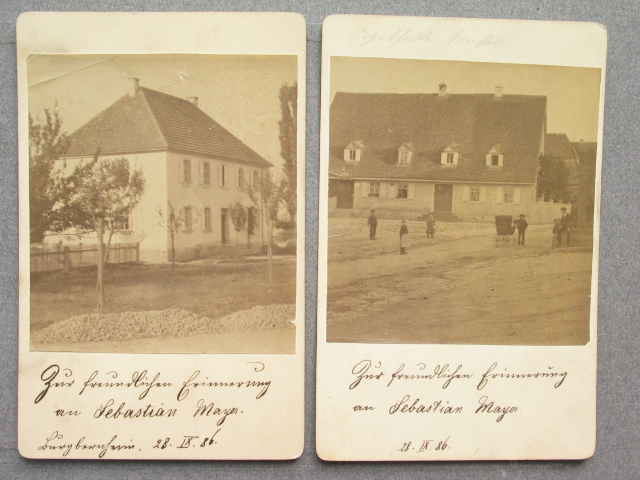 Zur freundlichen Erinnerung
an Sebastian Mayer.
Burgbernheim, 28. IX. 86.
Apotheke
Zur freundlichen Erinnerung
an Sebastian Mayer
28. IX. 86.